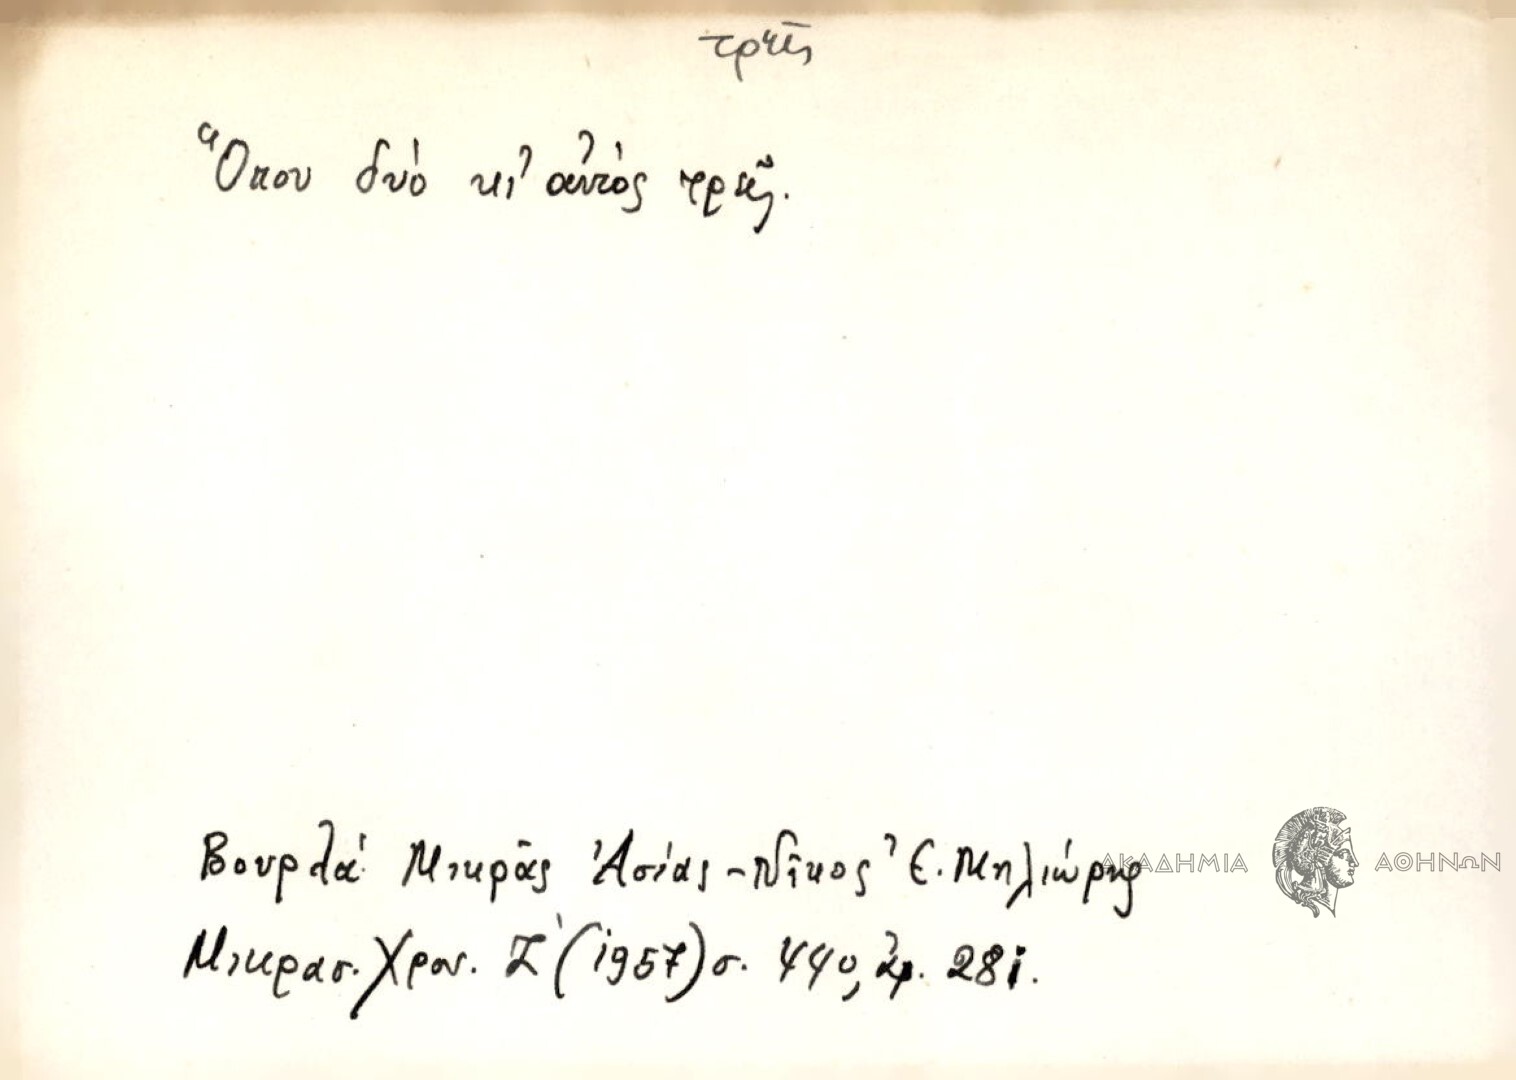 τρεῖς
Ὅπου δυό κι' αὐτὸς τρεῖς.
Βουρλά Μικρᾶς Ἀσίας - Νῖκος Ἐ. Μηλιώρης
Μικρασ. Χρον. Ζ' (1957) σ. 440, ἀρ. 281.
ΑΚΑΔΗΜΙΑ ΑΘΗΝΩΝ